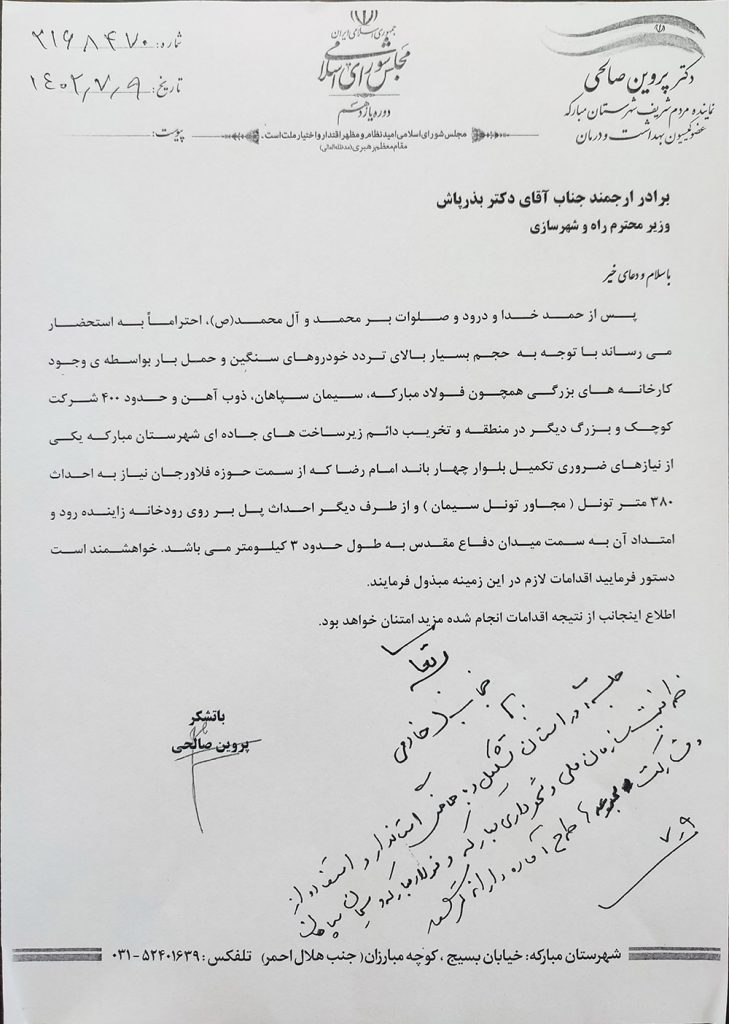 جمهوری اسلامی ایران
مجلس شورای اسلامی
دوره یازدهم
مجلس شورای اسلامی امید نظام و مظهر اقتدار و اختیار ملت است.
مقام معظم رهبری (مدظله‌العالی)
دکتر پروین صالحی
نماینده مردم شریف شهرستان مبارکه
عضو کمیسیون بهداشت و درمان
شماره: ۲۱۶۸۴۷۰
تاریخ: ۱۴۰۲٫۷٫۹
پیوست:
برادر ارجمند جناب آقای دکتر بذرپاش
وزیر محترم راه و شهرسازی
باسلام و دعای خیر
پس از حمد خدا و درود و صلوات بر محمد و آل محمد(ص)، احتراماً به استحضار
می رساند با توجه به حجم بسیار بالای تردد خودروهای سنگین و حمل بار بواسطه ی وجود
کارخانه های بزرگی همچون فولاد مبارکه، سیمان سپاهان، ذوب آهن و حدود ۴۰۰ شرکت
کوچک و بزرگ دیگر در منطقه و تخریب دائم زیرساخت های جاده ای شهرستان مبارکه یکی
از نیازهای ضروری تکمیل بلوار چهار باند امام رضا که از سمت حوزه فلاورجان نیاز به احداث
۳۸۰ متر تونل ( مجاور تونل سیمان ) و از طرف دیگر احداث پل بر روی رودخانه زاینده رود و
امتداد آن به سمت میدان دفاع مقدس به طول حدود ۳ کیلومتر می باشد. خواهشمند است
دستور فرمایید اقدامات لازم در این زمینه مبذول فرمایند.
اطلاع اینجانب از نتیجه اقدامات انجام شده مزید امتنان خواهد بود.
باتشکر
پروین صالحی
بسمه تعالی
جناب خادمی
جلسه در استان تشکیل و با استاندار و استفاده از
ظرفیت سازمان ملی و شهرداری مبارکه و فولاد مبارکه و سیمان سپاهان
و شرکت طرح آماده و ارائه گردد
۷٫۹
شهرستان مبارکه: خیابان بسیج ، کوچه مبارزان( جنب هلال احمر) تلفکس : ۵۲۴۰۱۶۳۹-۰۳۱